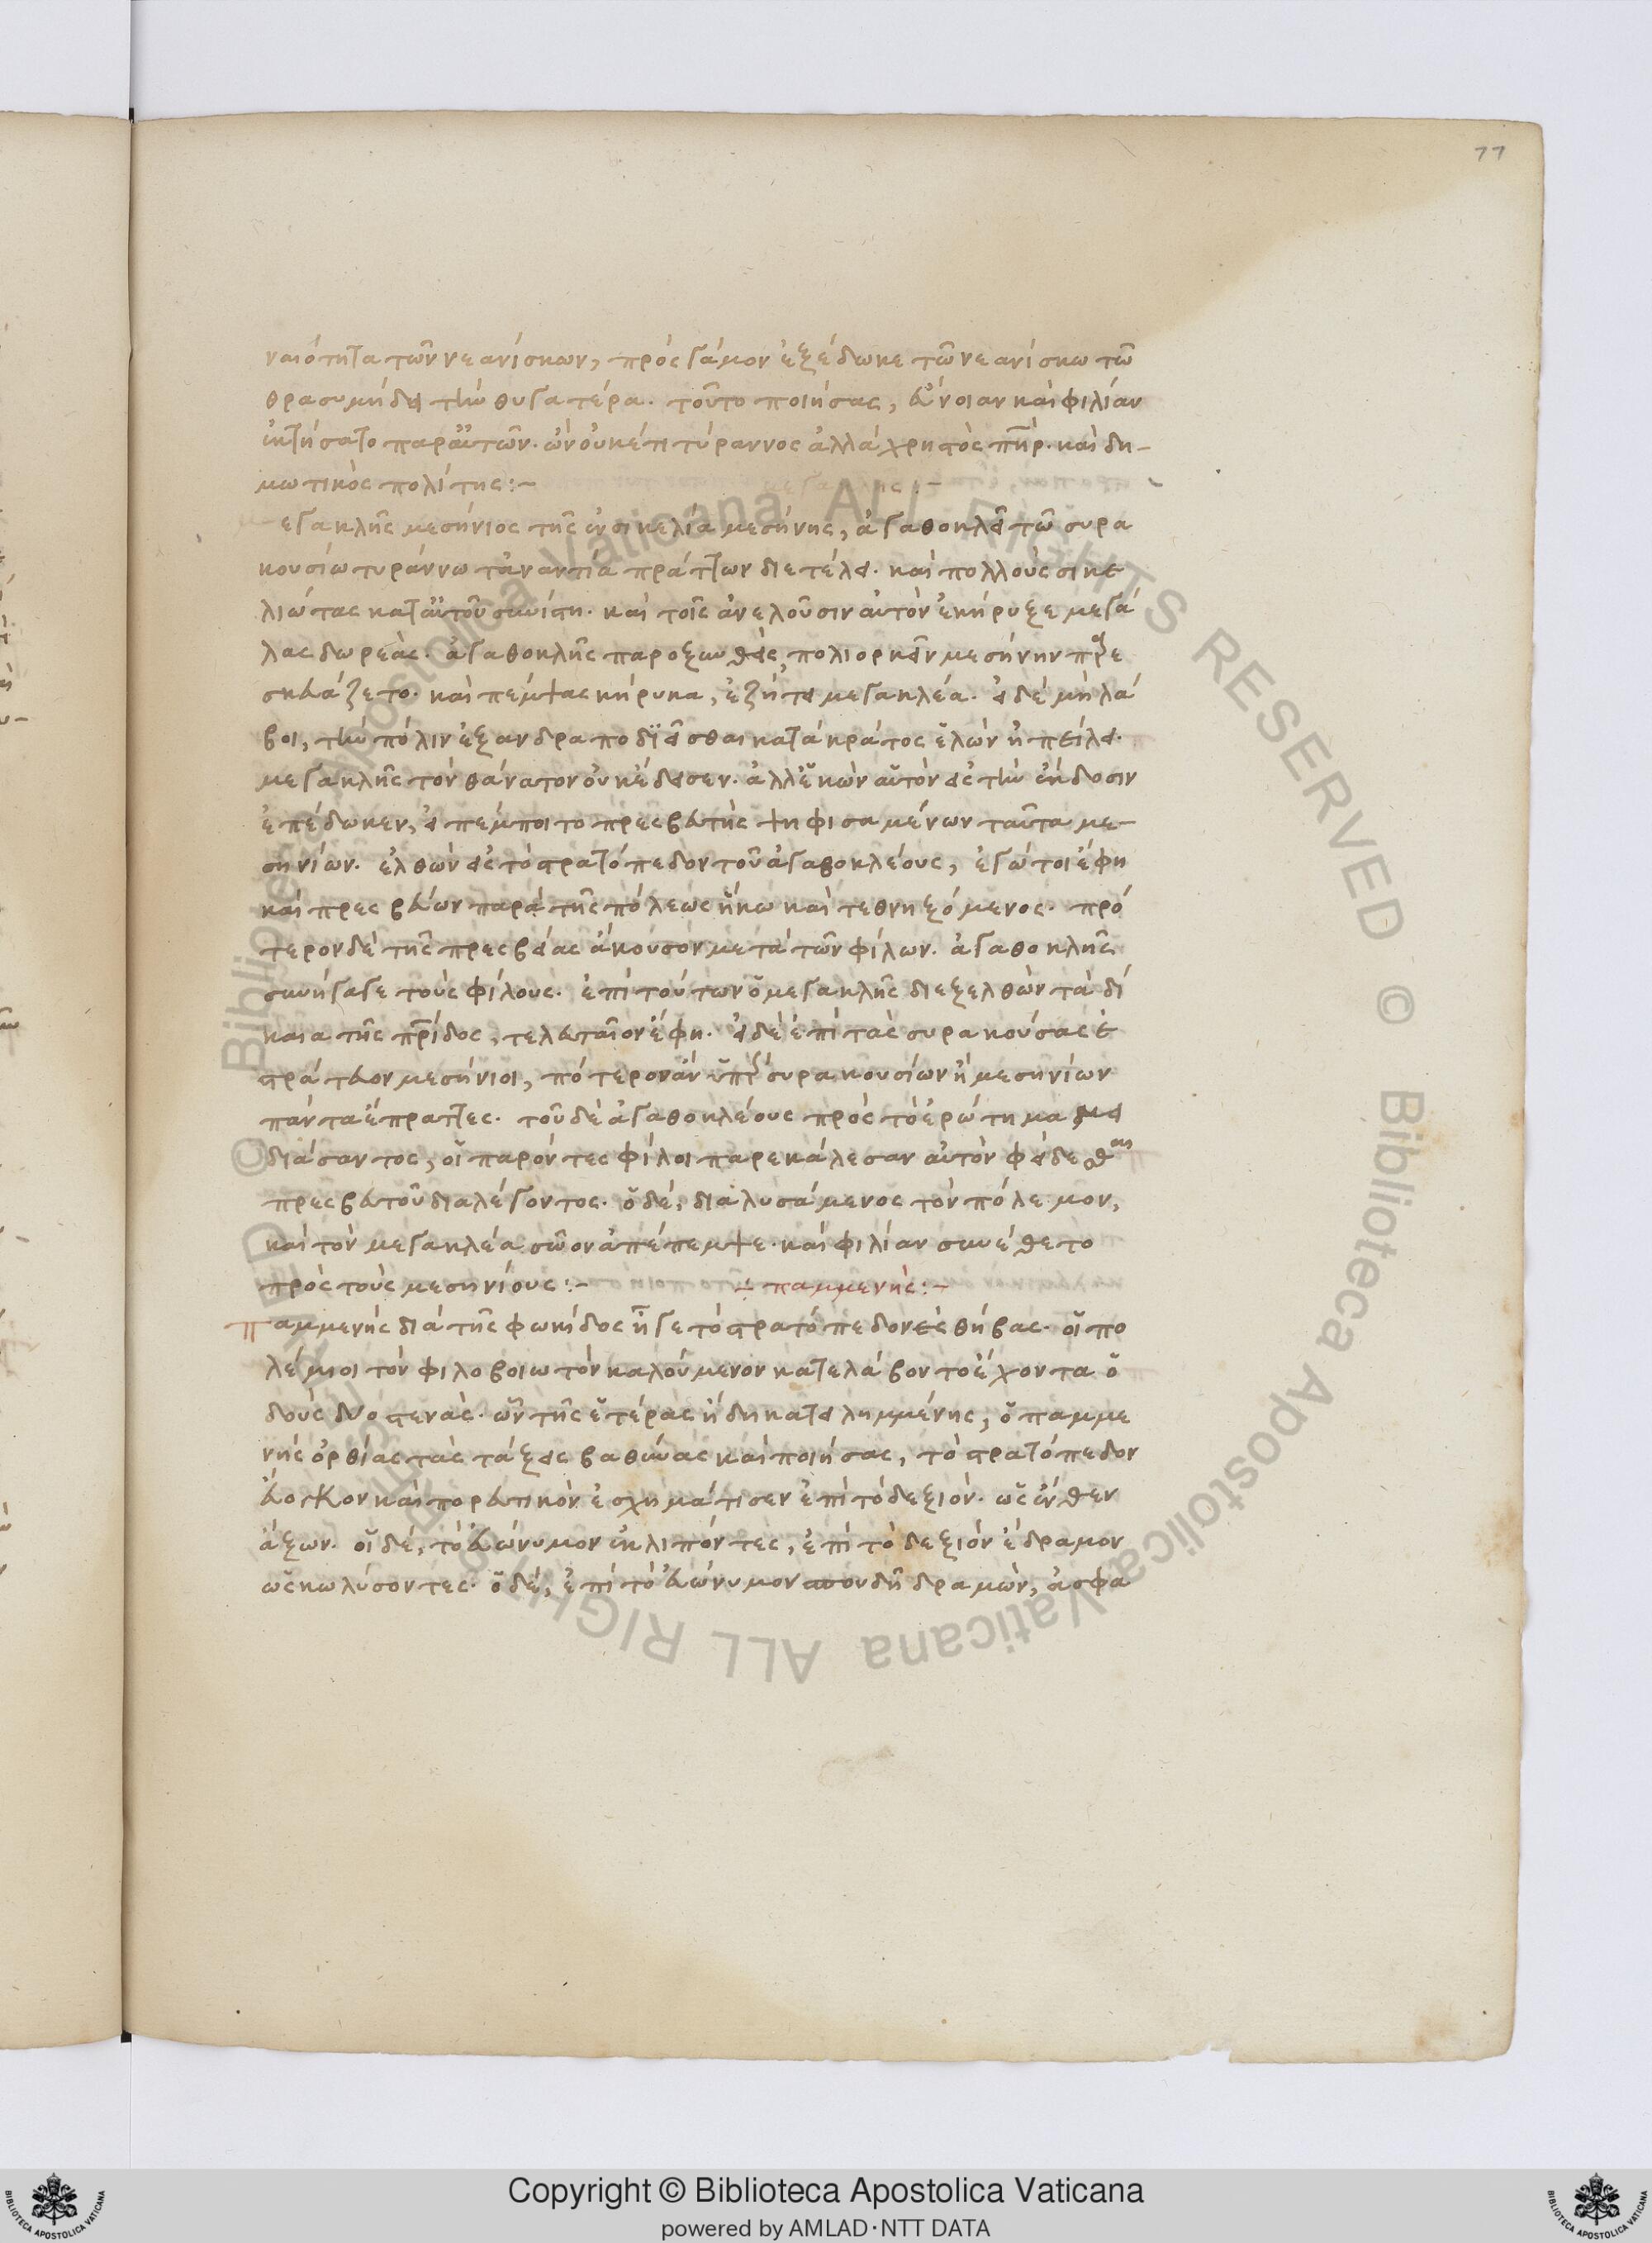 77
ναιότητα τῶν νεανίσκων, πρὸς γάμον ἐξέδωκε τῶ νεανίσκω τῶ
θρασυμήδει τὴν θυγατέρα. τοῦτο ποιήσας, εὔνοιαν καὶ φιλίαν
ἐκτήσατο παρ' αὐτῶν. ὢν οὐκέτι τύραννος ἀλλὰ χρηστὸς πηρ. καὶ δη-
μωτικὸς πολίτης:- μεγακλῆς:-
εγακλῆς μεσήνιος τῆς ἐν σικελία μεσήνης, ἀγαθοκλεῖ τῶ συρα
κουσίω τυράννω τἀναντία πράττων διετέλει. καὶ πολλοὺς σικε
λιώτας κατ' αὐτοῦ συνίστη. καὶ τοῖς ἀνελοῦσιν αὐτὸν ἐκήρυξε μεγά
λας δωρεάς. ἀγαθοκλῆς παροξυνθεὶς, πολιορκεῖν μεσήνην παρε
σκευάζετο. καὶ πέμψας κήρυκα, ἐζήτει μεγακλέα. εἰ δὲ μὴ λά
βοι, τὴν πόλιν ἐξανδραποδιεῖσθαι κατὰ κράτος ἑλὼν ἠπείλει.
μεγακλῆς τὸν θάνατον οὐκ ἔδεισεν. ἀλλ' ἑκὼν αὑτὸν εἰς τὴν ἔκδοσιν
ἐπέδωκεν, εἰ πέμποιτο πρεσβευτὴς ψηφισαμένων ταῦτα με-
σηνίων. ἐλθὼν εἰς τὸ στρατόπεδον τοῦ ἀγαθοκλέους, ἐγώ τοι ἔφη
καὶ πρεσβεύων παρὰ τῆς πόλεως ἥκω καὶ τεθνηξόμενος. πρό
τερον δὲ τῆς πρεσβείας ἄκουσον μετὰ τῶν φίλων. ἀγαθοκλῆς
συνήγαγε τοὺς φίλους. ἐπὶ τούτων ὁ μεγακλῆς διεξελθὼν τὰ δί
καια τῆς πρίδος, τελευταῖον ἔφη. εἰ δὲ ἐπὶ τὰς συρακούσας ἐ
στράτευον μεσήνιοι, πότερον ἂν ὑπὲρ συρακουσίων ἢ μεσηνίων
πάντα ἔπραττες. τοῦ δὲ ἀγαθοκλέους πρὸς τὸ ἐρώτημα μει
διάσαντος, οἱ παρόντες φίλοι παρεκάλεσαν αὐτὸν φείδεσθαι
πρεσβευτοῦ διαλέγοντος. ὁ δὲ, διαλυσάμενος τὸν πόλεμον,
καὶ τὸν μεγακλέα σῶον ἀπέπεμψε. καὶ φιλίαν συνέθετο
πρὸς τοὺς μεσηνίους:- -: παμμενής:-
παμμενὴς διὰ τῆς φωκίδος ἦγε τὸ στρατόπεδον ἐς θήβας. οἱ πο
λέμιοι τὸν φιλοβοιωτὸν καλούμενον κατελάβοντο ἔχοντα ὁ
δοὺς δύο στενάς. ὧν τῆς ἑτέρας ἤδη κατειλημμένης, ὁ παμμε
νὴς ὀρθίας τὰς τάξεις βαθύνας καὶ ποιήσας, τὸ στρατόπεδον
εὔογκον καὶ πορευτικὸν ἐσχημάτισεν ἐπὶ τὸ δεξιόν. ὡς ἔνθεν
ἄξων. οἱ δὲ, τὸ εὐώνυμον ἐκλιπόντες, ἐπὶ τὸ δεξιὸν ἔδραμον
ὡς κωλύσοντες. ὁ δὲ, ἐπὶ τὸ εὐώνυμον σπουδῆ δραμὼν, ἀσφα
© Biblioteca Apostolica Vaticana ALL RIGHTS RESERVED © Biblioteca Apostolica Vaticana ALL RIGHTS RESERVED
Copyright © Biblioteca Apostolica Vaticana
powered by AMLAD·NTT DATA
BIBLIOTECA APOSTOLICA VATICANA
BIBLIOTECA APOSTOLICA VATICANA